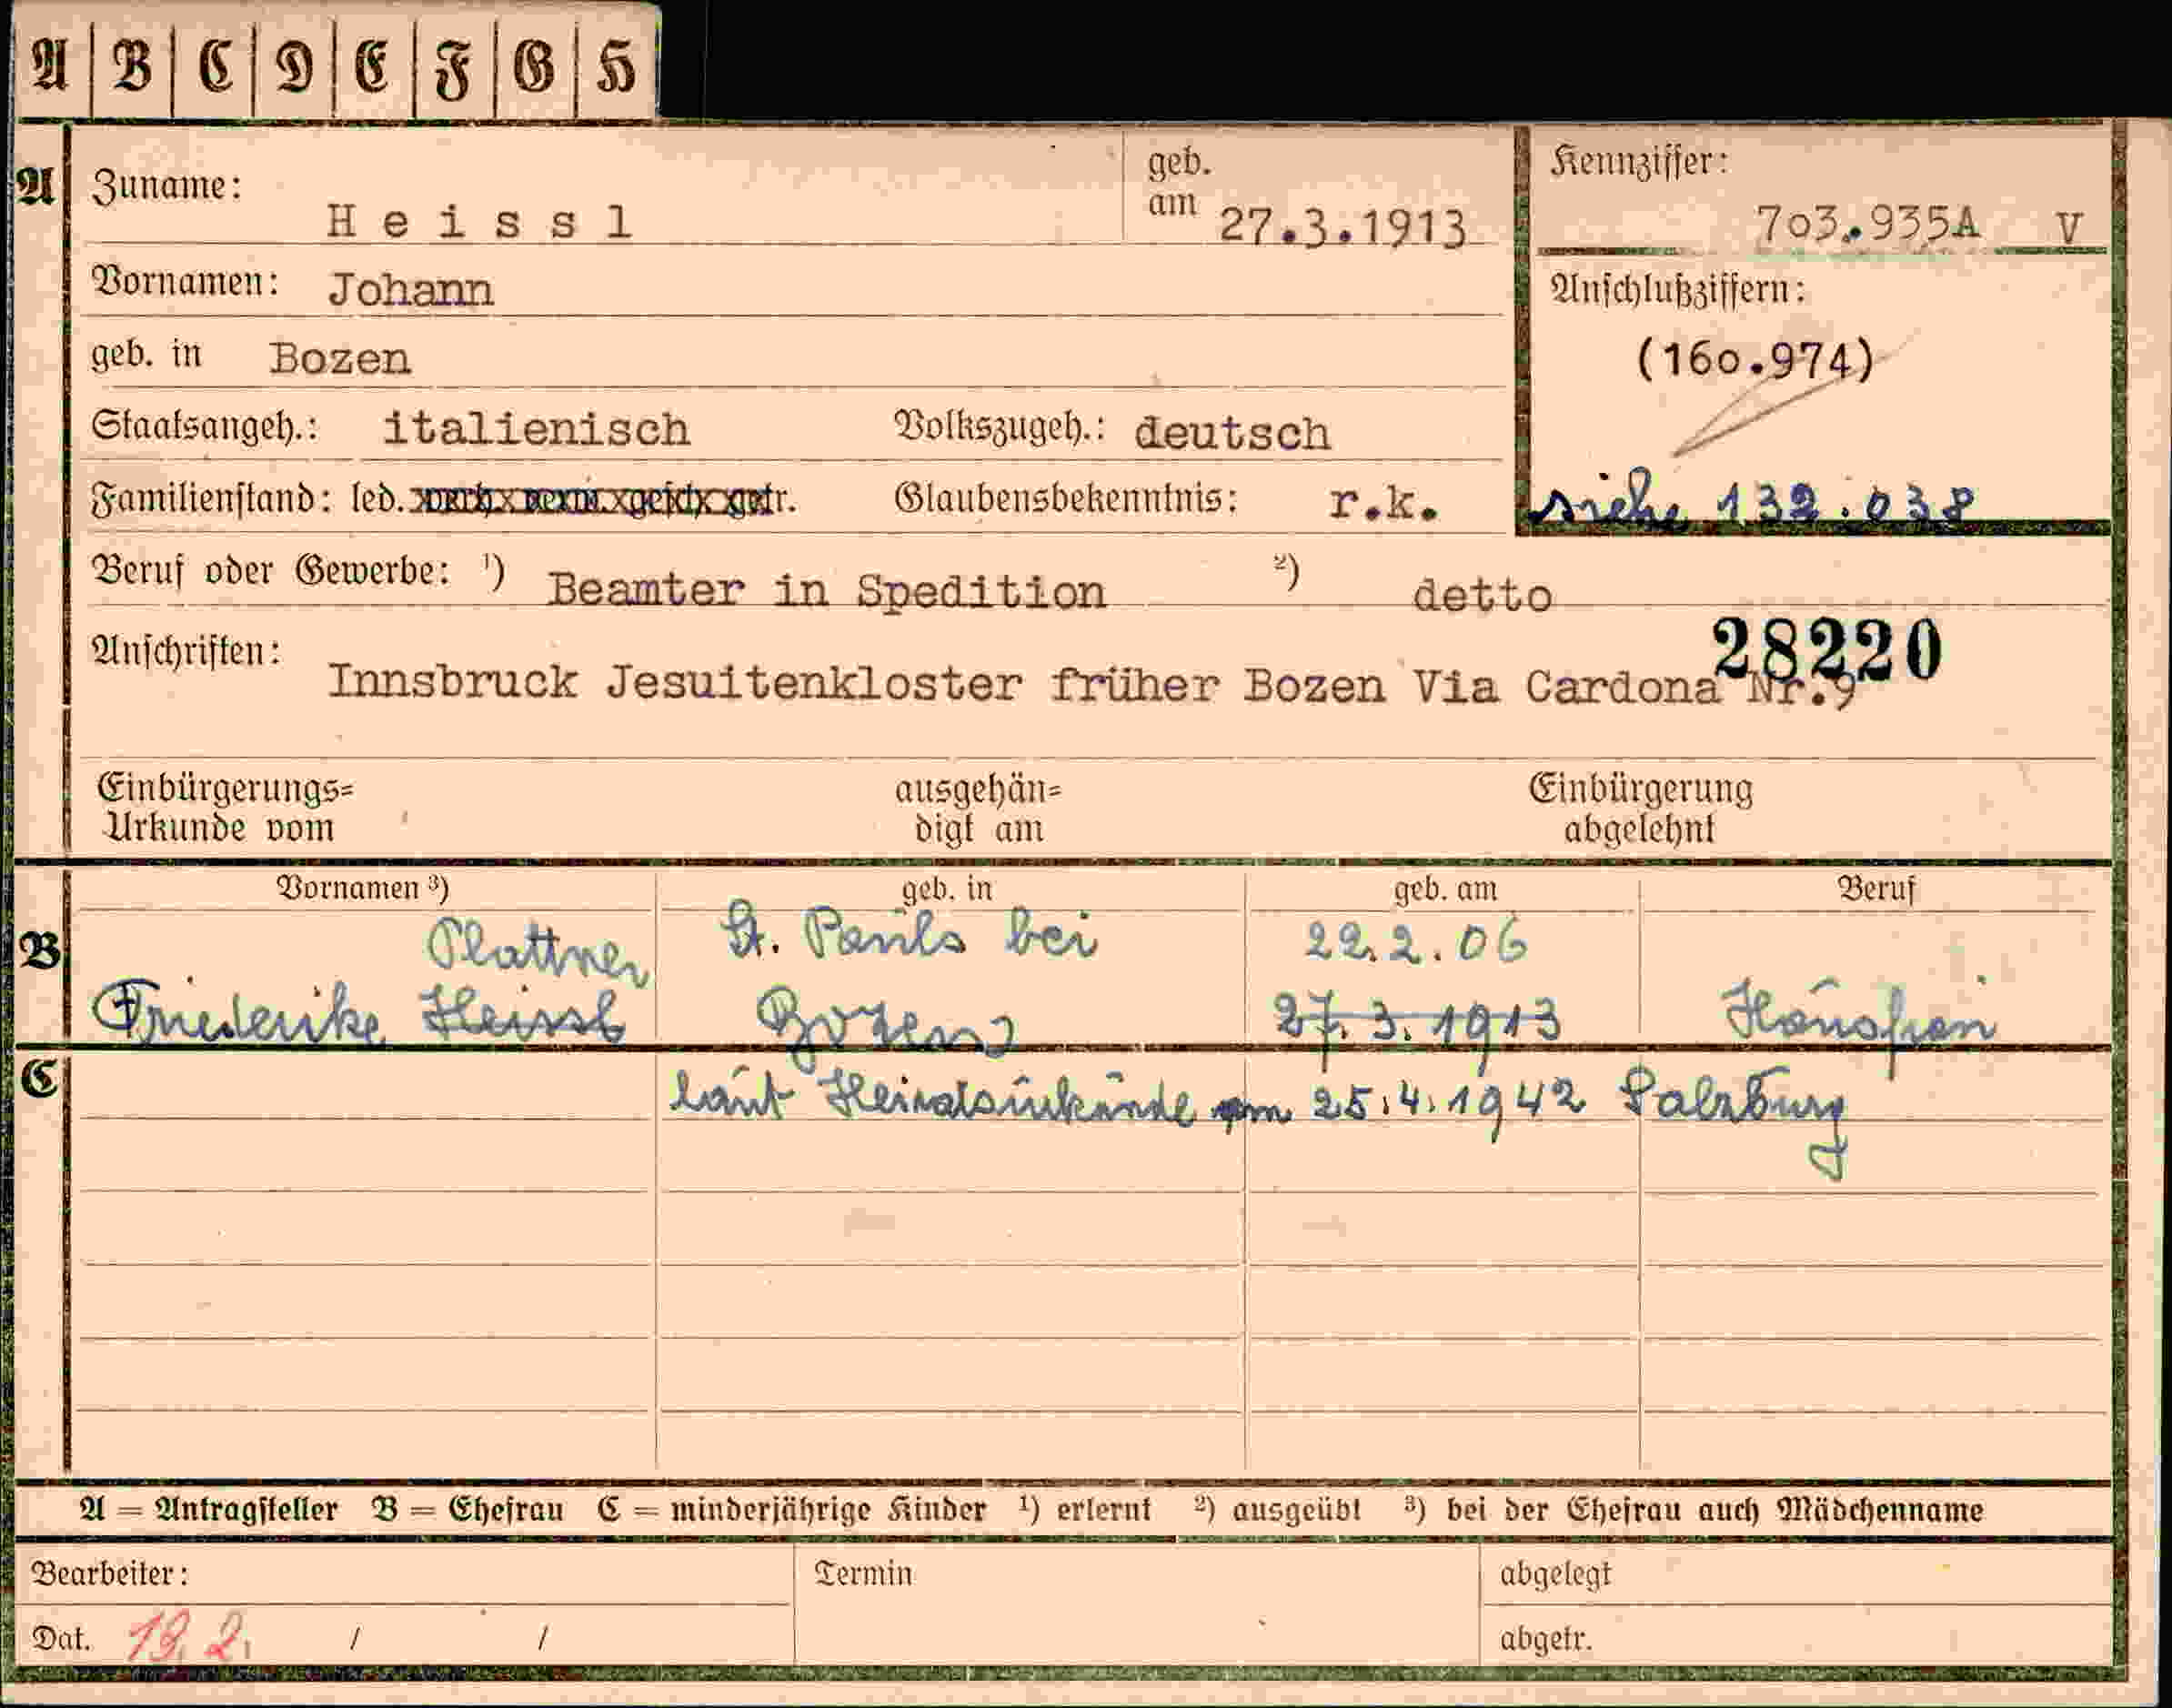 A B C D E F G H
A Zuname: Heissl geb. am 27.3.1913 Kennziffer: 703.935A V
Vornamen: Johann Anschlußziffern:
geb. in Bozen (160.974)
Staatsangeh.: italienisch Volkszugeh.: deutsch
Familienstand: led. verh. verw. gesch. getr. Glaubensbekenntnis: r.k. siehe 132.038
Beruf oder Gewerbe: ¹) Beamter in Spedition ²) detto
28220
Anschriften: Innsbruck Jesuitenkloster früher Bozen Via Cardona Nr.9
Einbürgerungs= ausgehän= Einbürgerung
Urkunde vom digt am abgelehnt
Vornamen ³) geb. in geb. am Beruf
B Plattner St. Pauls bei 22.2.06
Friederike Heissl Bozen 27.3.1913 Hausfrau
C laut Heiratsurkunde vom 25.4.1942 Salzburg
A = Antragsteller B = Ehefrau C = minderjährige Kinder ¹) erlernt ²) ausgeübt ³) bei der Ehefrau auch Mädchenname
Bearbeiter: Termin abgelegt
Dat. 13.2. / / abgetr.